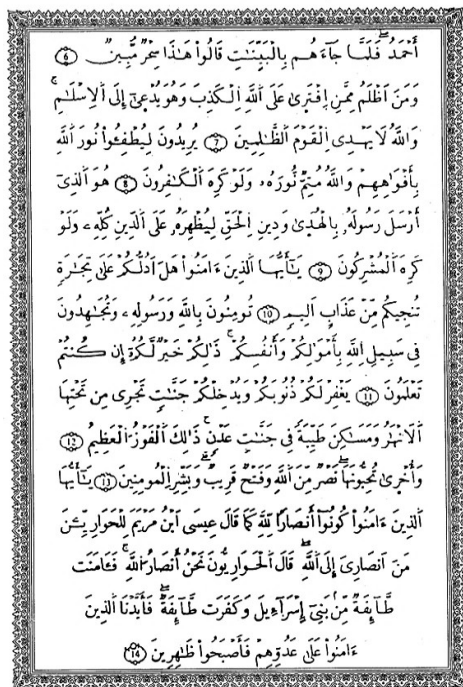 أَحْمَدُ فَلَمَّا جَآءَهُم بِالْبَيِّنَٰتِ قَالُوا۟ هَٰذَا سِحْرٌ مُّبِينٌ ٦
وَمَنَ اَظْلَمُ مِمَّنِ اِفْتَر۪ىٰ عَلَى اَللَّهِ اِلْكَذِبَ وَهُوَ يُدْع۪ىٰٓ إِلَى اَلِاسْلَٰمِ
وَاللَّهُ لَا يَهْدِى اِلْقَوْمَ اَلظَّٰلِمِينَ ٧ يُرِيدُونَ لِيُطْفِـُٔوا۟ نُورَ اَللَّهِ
بِأَفْوَٰهِهِمْ وَاللَّهُ مُتِمٌّ نُورَهُۥ وَلَوْ كَرِهَ اَلْكَٰفِرُونَ ٨ هُوَ اَلذِىٓ
أَرْسَلَ رَسُولَهُۥ بِالْهُد۪ىٰ وَدِينِ اِلْحَقِّ لِيُظْهِرَهُۥ عَلَى اَلدِّينِ كُلِّهِۦ وَلَوْ
كَرِهَ اَلْمُشْرِكُونَ ٩ يَٰٓأَيُّهَا اَلذِينَ ءَامَنُوا۟ هَلَ اَدُلُّكُمْ عَلَىٰ تِجَٰرَةٍ
تُنجِيكُم مِّنْ عَذَابٍ اَلِيمٍ ١٠ تُومِنُونَ بِاللَّهِ وَرَسُولِهِۦ وَتُجَٰهِدُونَ
فِى سَبِيلِ اِللَّهِ بِأَمْوَٰلِكُمْ وَأَنفُسِكُمْ ذَٰلِكُمْ خَيْرٌ لَّكُمُۥٓ إِن كُنتُمْ
تَعْلَمُونَ ١١ يَغْفِرْ لَكُمْ ذُنُوبَكُمْ وَيُدْخِلْكُمْ جَنَّٰتٍ تَجْرِى مِن تَحْتِهَا
اَلَانْهَٰرُ وَمَسَٰكِنَ طَيِّبَةً فِى جَنَّٰتِ عَدْنٍ ذَٰلِكَ اَلْفَوْزُ اُلْعَظِيمُ ١٢
وَأُخْر۪ىٰ تُحِبُّونَهَا نَصْرٌ مِّنَ اَللَّهِ وَفَتْحٌ قَرِيبٌ وَبَشِّرِ اِلْمُومِنِينَ ١٣ يَٰٓأَيُّهَا
اَلذِينَ ءَامَنُوا۟ كُونُوٓا۟ أَنصَارًا لِّلهِ كَمَا قَالَ عِيسَى اَبْنُ مَرْيَمَ لِلْحَوَارِيِّـۧنَ
مَنَ اَنصَارِىَ إِلَى اَللَّهِ قَالَ اَلْحَوَارِيُّونَ نَحْنُ أَنصَارُ اُللَّهِ فَـَٔامَنَت
طَّآئِفَةٌ مِّنۢ بَنِىٓ إِسْرَآءِيلَ وَكَفَرَت طَّآئِفَةٌ فَأَيَّدْنَا اَلذِينَ
ءَامَنُوا۟ عَلَىٰ عَدُوِّهِمْ فَأَصْبَحُوا۟ ظَٰهِرِينَ ١٤